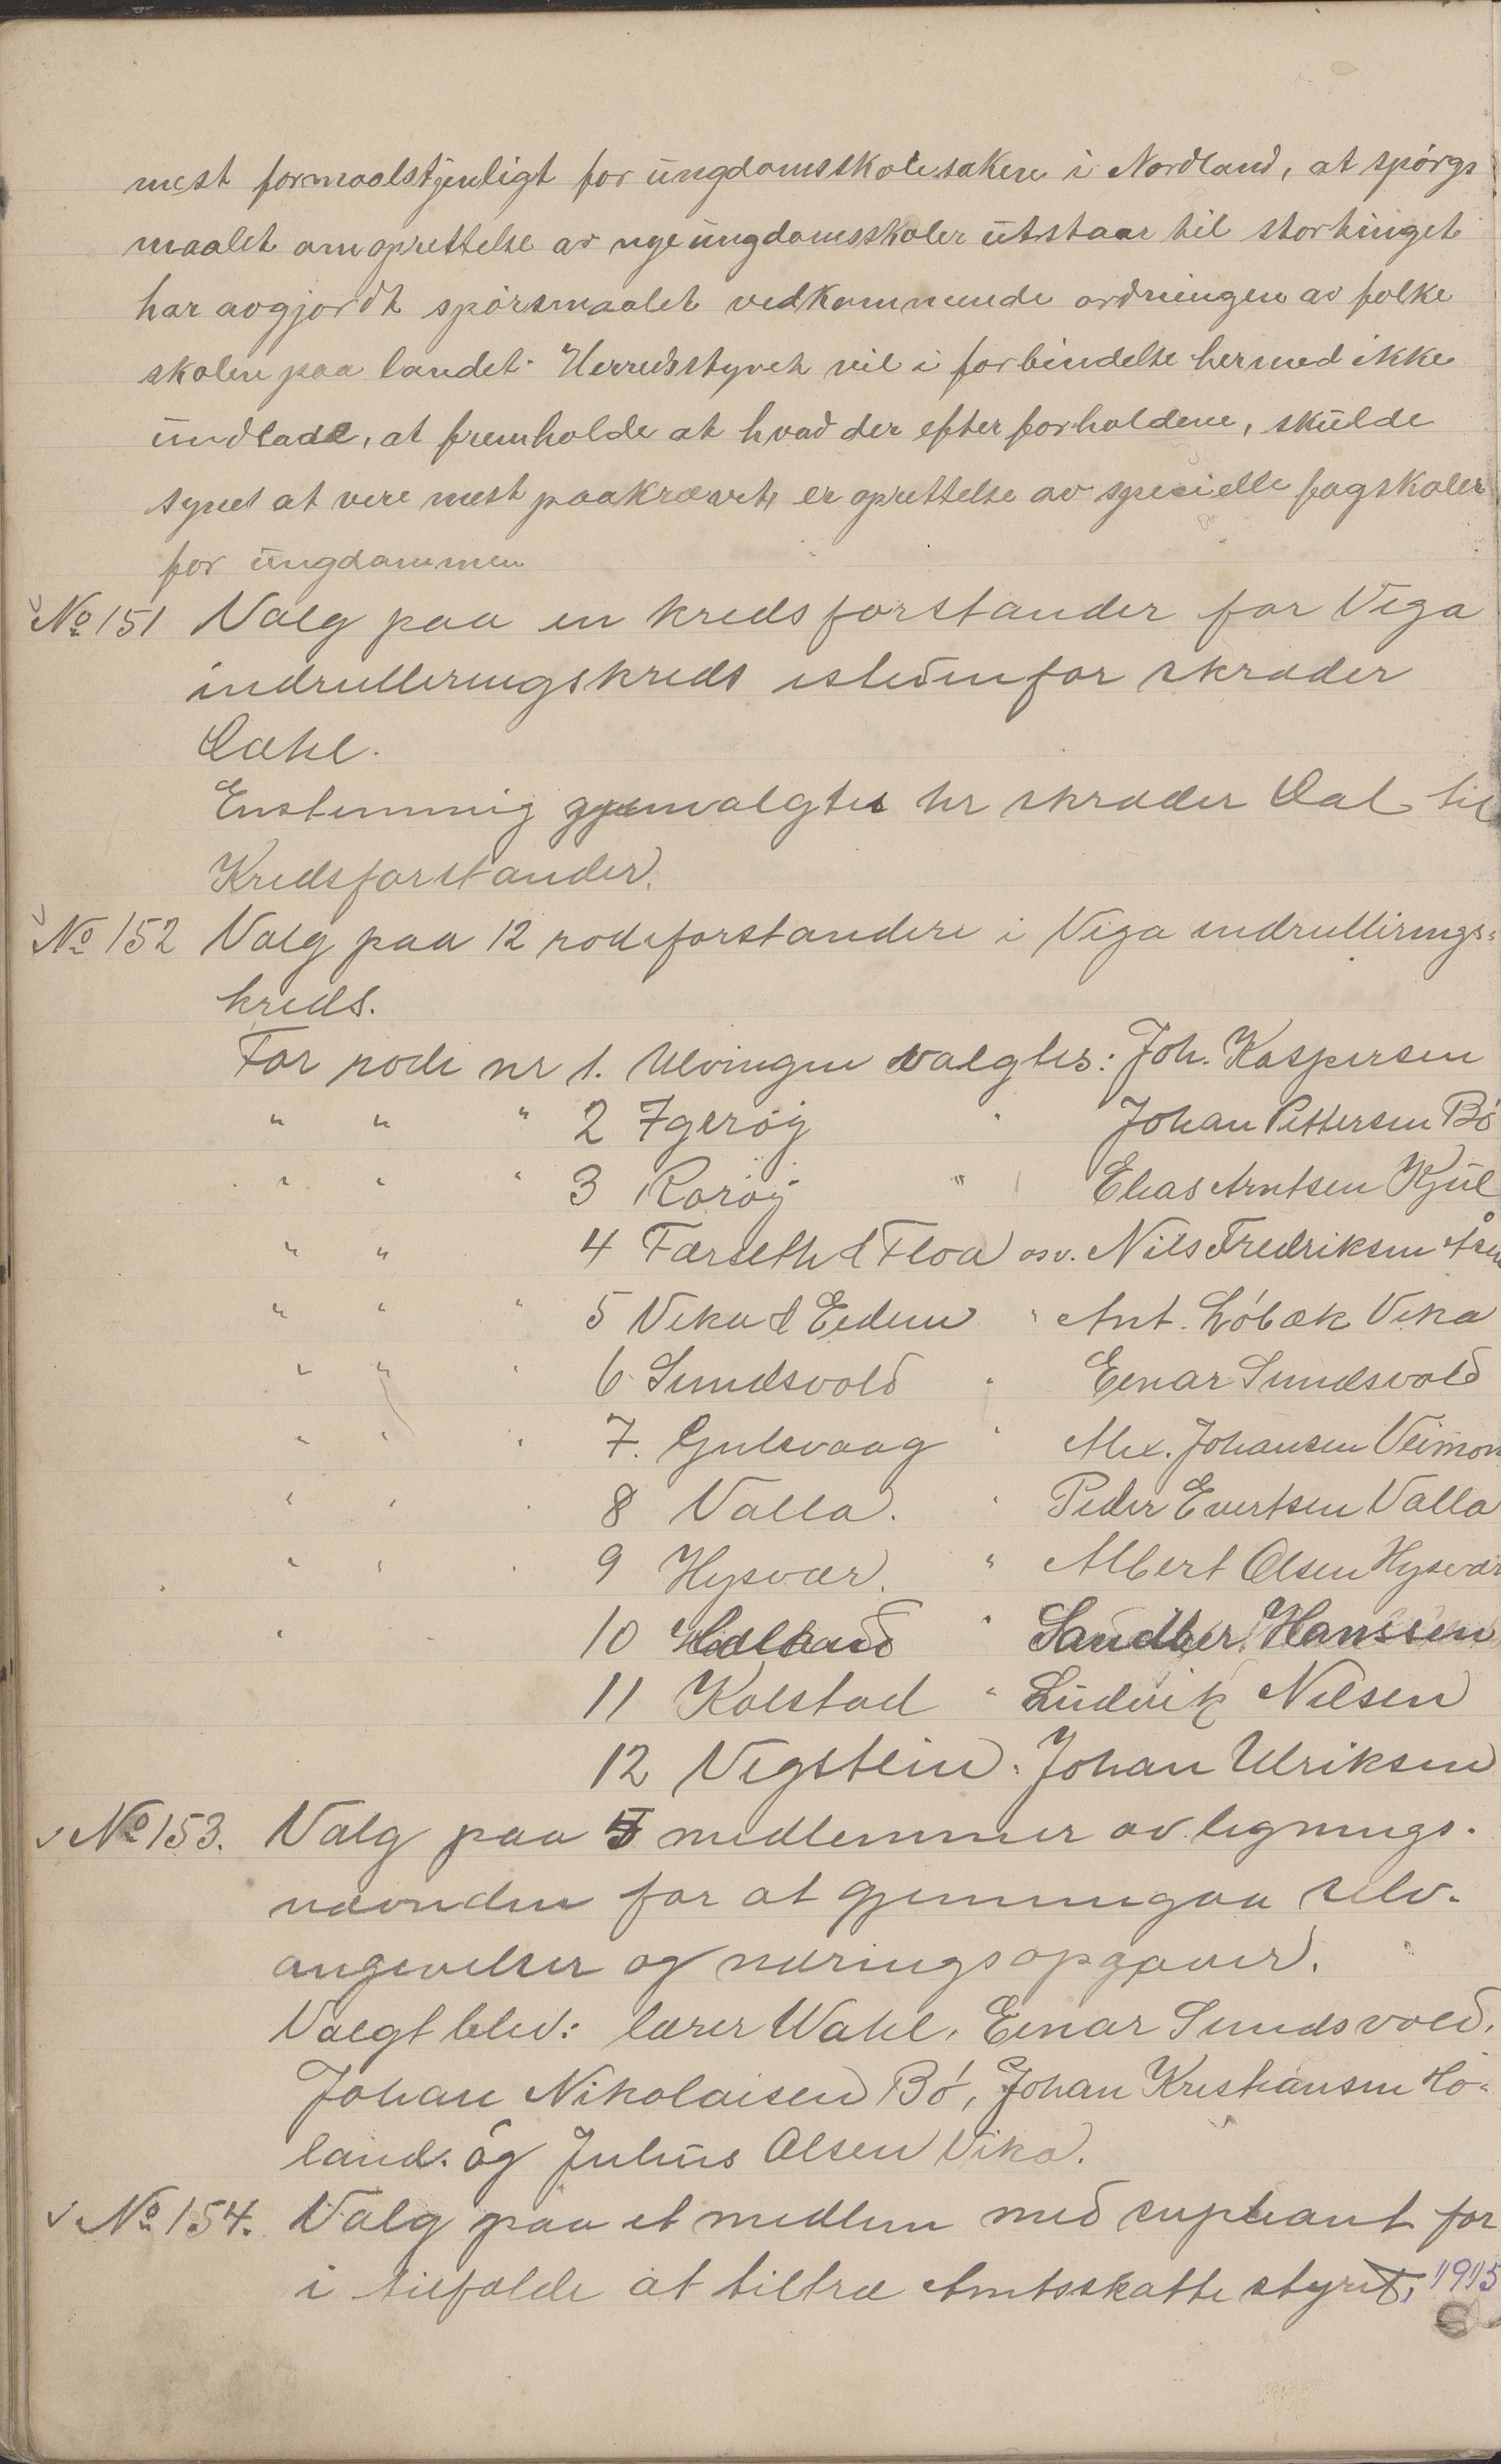 mest formaalstjenligt for ungdomsskolesaken i Nordland, at spørgs
maalet om oprettelse av nye ungdomsskoler utstaar til stortinget
har avgjordt spørsmaalet vedkommende ordningen av folke
skolen paa landet. Herredsstyret vil i forbindelse hermed ikke
undlade, at fremholde at hvad der efter forholdene, skulde
synes at vere mest paakrævet, er oprettelse av specielle fagskoler
for ungdommen
No 151 Valg paa en kredsforstander for Vega
indrulleringskreds istedenfor skræder
Dahl.
Enstemmig gjenvalgtes hr skræder Dal til
Kredsforstander.
No 152 Valg paa 12 rodeforstandere i Vega indrullerings-
kreds.
For rode nr 1. Ulvingen valgtes: Joh. Kaspersen
" " " 2 Igerøy " Johan Pettersen Bø
" " " 3 Rørøy " Elias Arntsen Kjul
" " 4 Færseth & Floa osv. Nils Fredriksen
" " " 5 Vika & Eidem " Ant. Løbæk Vika
" " " 6 Sundsvold " Einar Sundsvold
" " " 7. Gulsvaag " Alex. Johansen
" " " 8 Valla. " Peder Evertsen Valla
" " " 9 Hysvær. " Albert Olsen Hysvær
" " 10 " Sandber Hanssen
11 Kolstad " Ludvik Nilsen
12 Vegstein " Johan Ulriksen
No 153. Valg paa 5 medlemmer av lignings-
nævnden for at gjennemgaa selv-
angivelser og næringsopgaver.
Valgt blev: lærer Wahl, Einar Sundsvold,
Johan Nikolaisen Bø, Johan Kristiansen Hø-
land. og Julius Olsen Vika.
No 154. Valg paa et medlem med supleant for
i tilfælde at tiltræ Amtsskattestyret, 1915